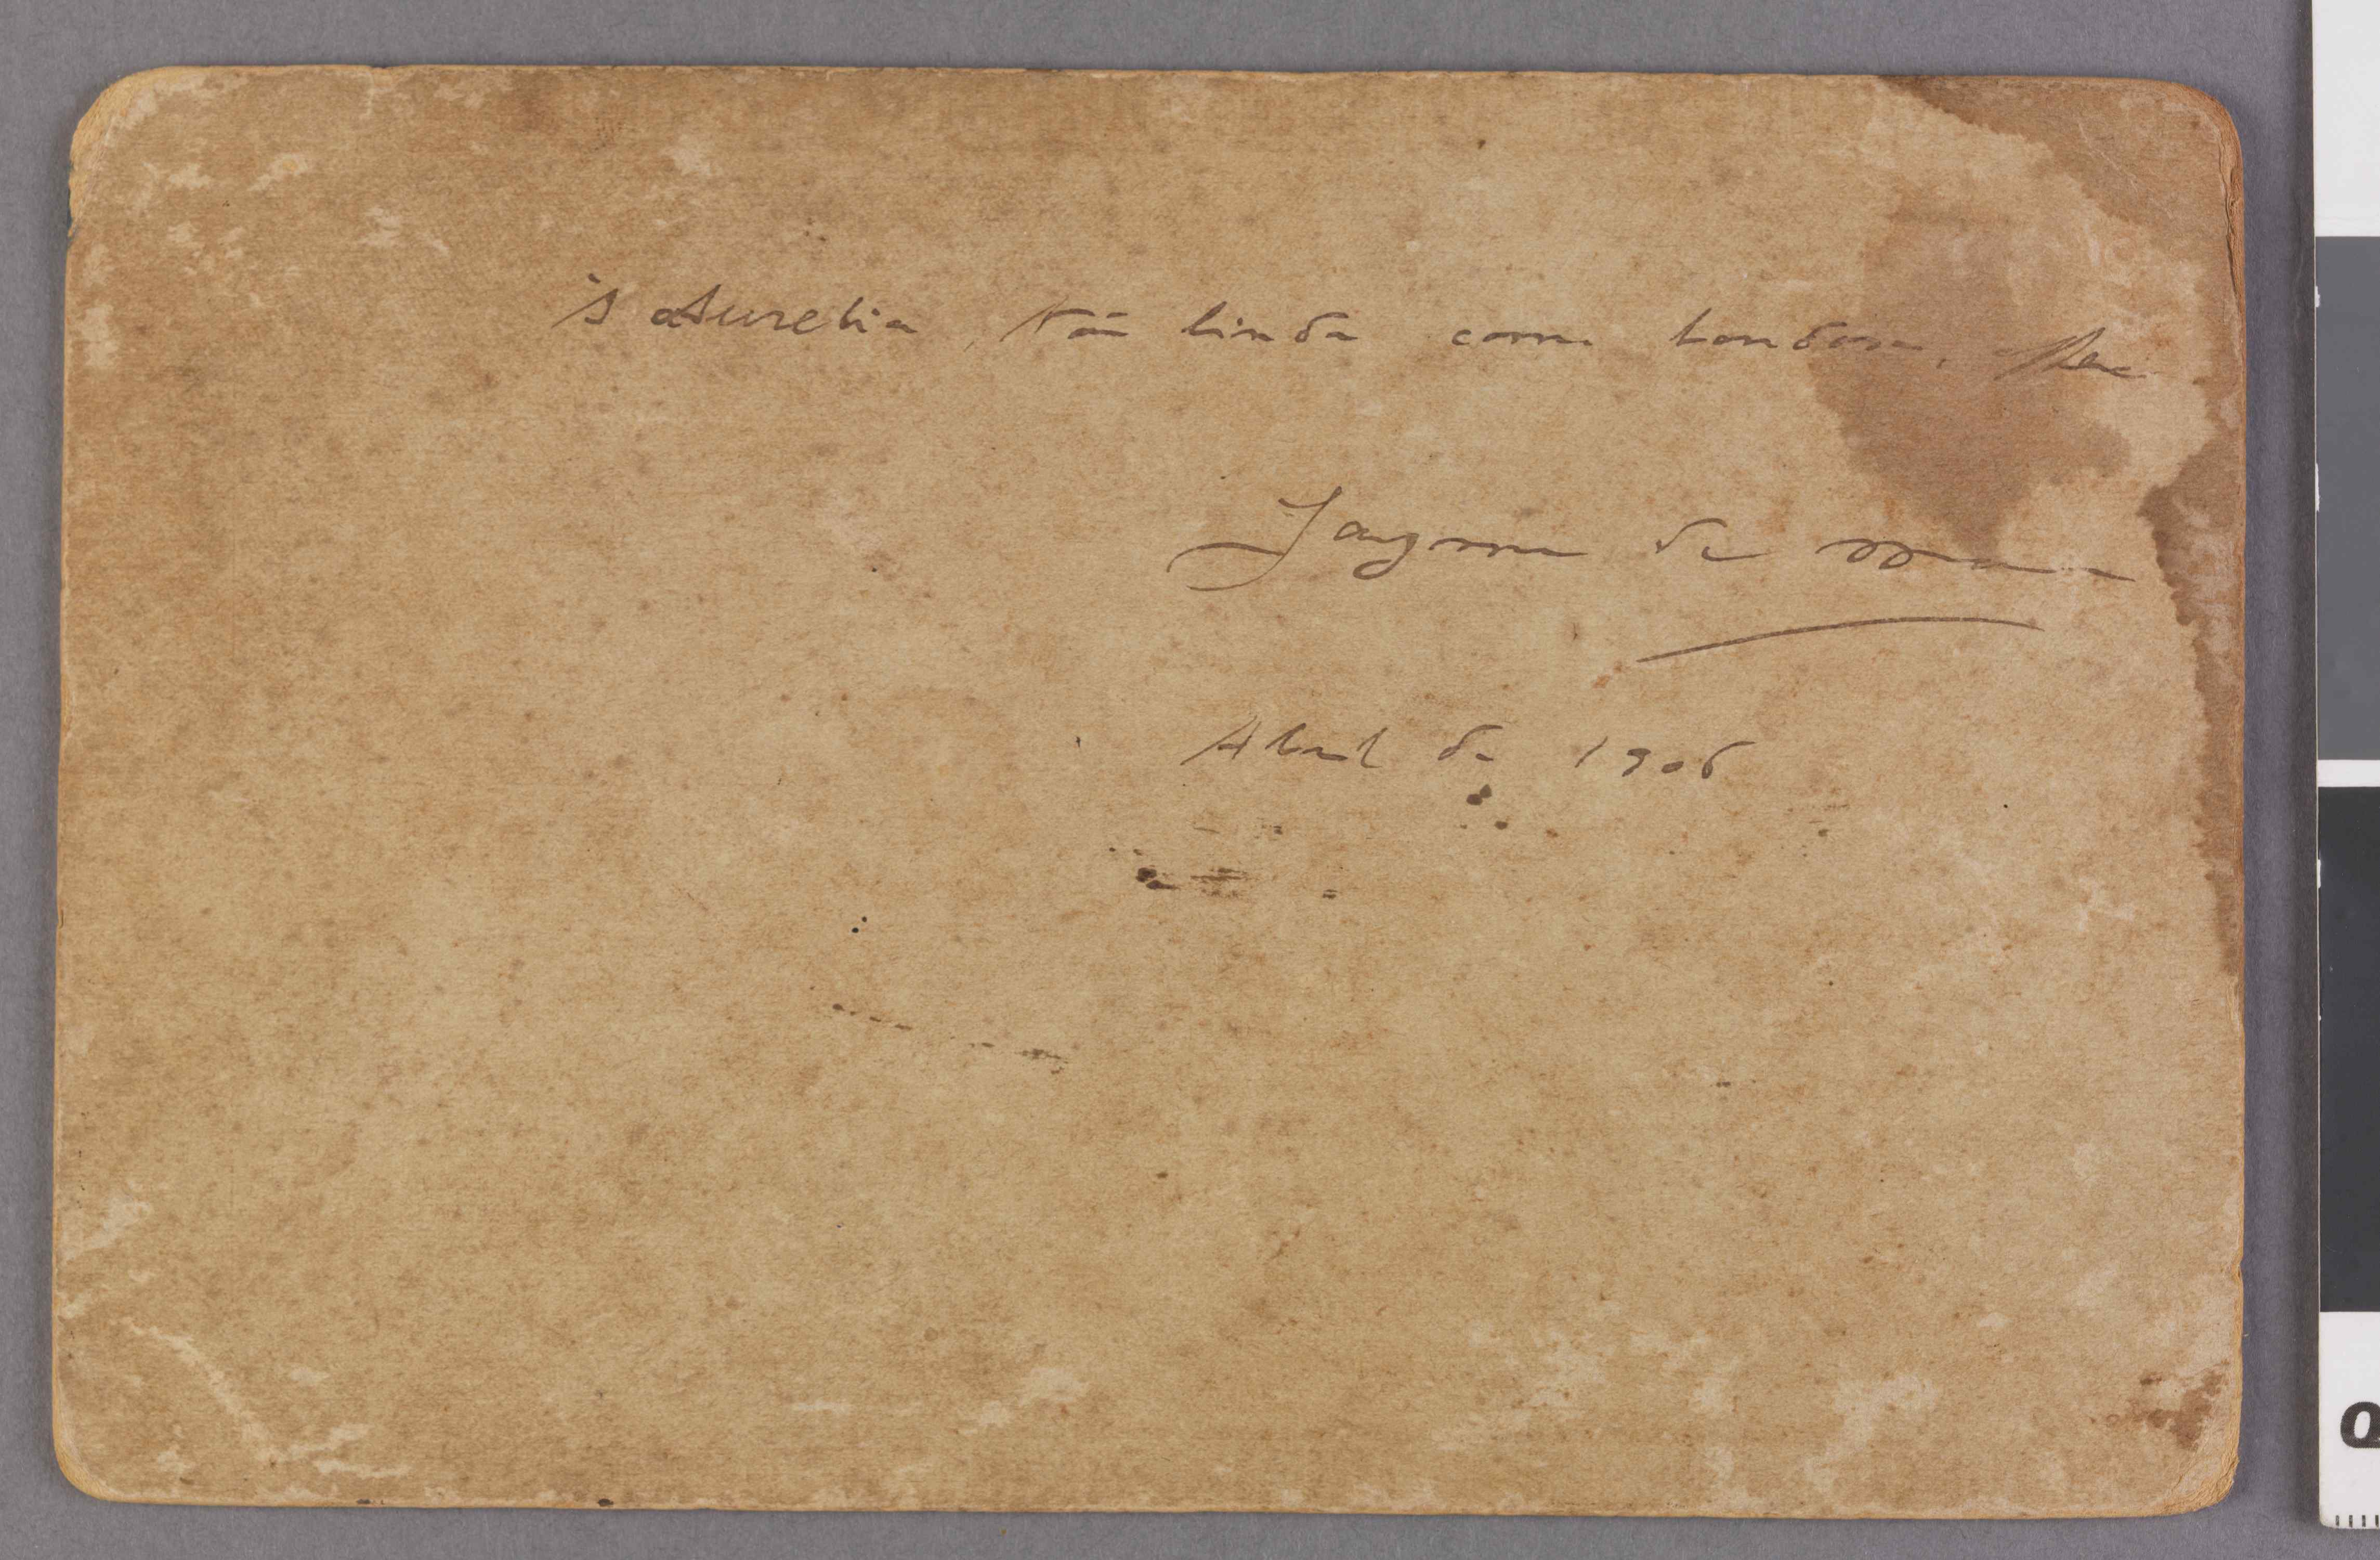 À Aurelia, tão linda como bondosa, offerece
Jayme de
Abril de 1906
0